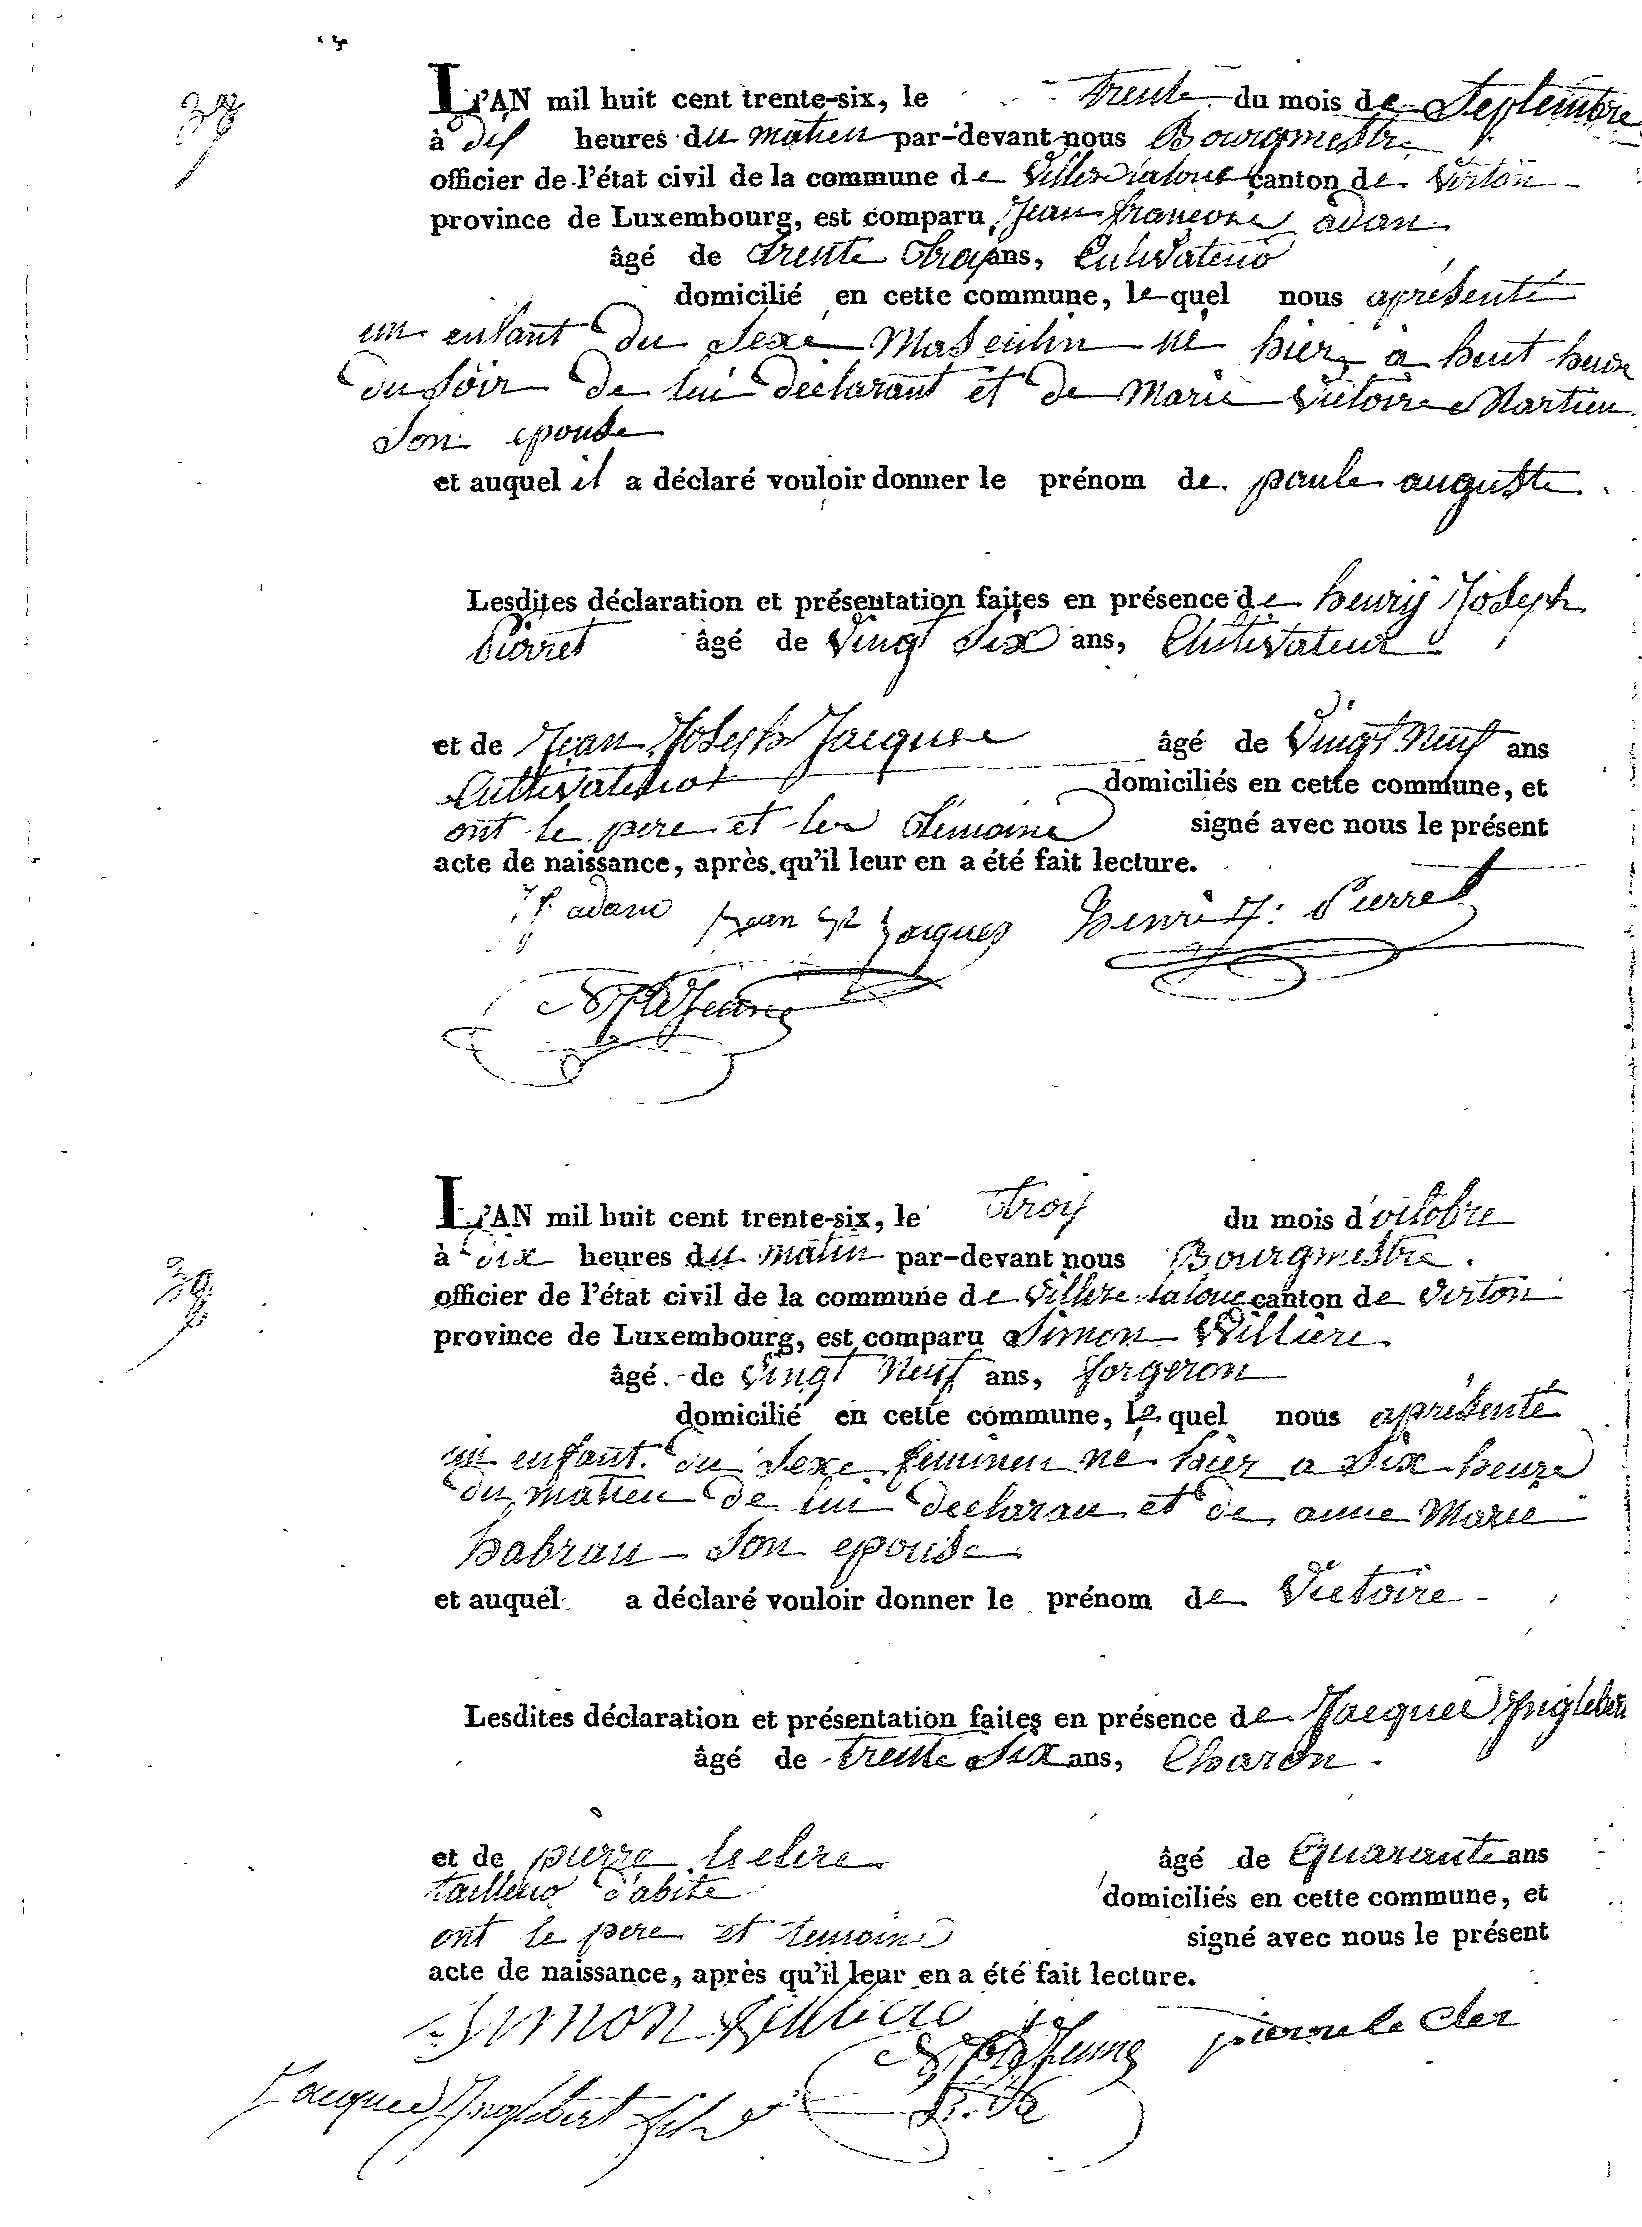 38
L'AN mil huit cent trente-six, le trente du mois de Septembre
à dix heures du matien par-devant nous Bourgmestre
officier de l'état civil de la commune de Villers laloue canton de Virton
province de Luxembourg, est comparu Jean françois adan
âgé de trente troy ans, Cultivateur
domicilié en cette commune, le quel nous aprésenté
un enfant du Sexe Masculin né hier a huit heure
du Soir de lui déclarant et de Marie Victoire Martien
Son epouse
et auquel il a déclaré vouloir donner le prénom de paule auguste
Lesdites déclaration et présentation faites en présence de henry Joseph
pierret âgé de Vingt Six ans, Cultivateur
et de Jean Joseph Jacques âgé de Vingt Neuf ans
Cultivateur domiciliés en cette commune, et
ont le pere et les témoins signé avec nous le présent
acte de naissance, après qu'il leur en a été fait lecture.
J f adam Jean Jacques henri J: Pierret
39
L'AN mil huit cent trente-six, le troy du mois d'octobre
à dix heures du matin par-devant nous Bourgmestre
officier de l'état civil de la commune de Villers laloue canton de Virton
province de Luxembourg, est comparu Simon Willière
âgé de Vingt Neuf ans, forgeron
domicilié en cette commune, le quel nous aprésenté
un enfant du Sexe feminien né hier a Six heure
du matien de lui declaran et de anne Marie
habran Son epouse
et auquel a déclaré vouloir donner le prénom de Victoire
Lesdites déclaration et présentation faites en présence de Jacques Inglebert
âgé de trente Six ans, Charon
et de pierre leclere âgé de Quarante ans
tailleur d'abite domiciliés en cette commune, et
ont le pere et temoins signé avec nous le présent
acte de naissance, après qu'il leur en a été fait lecture.
Simon Willière pierre le cler
Jacques Inglebert